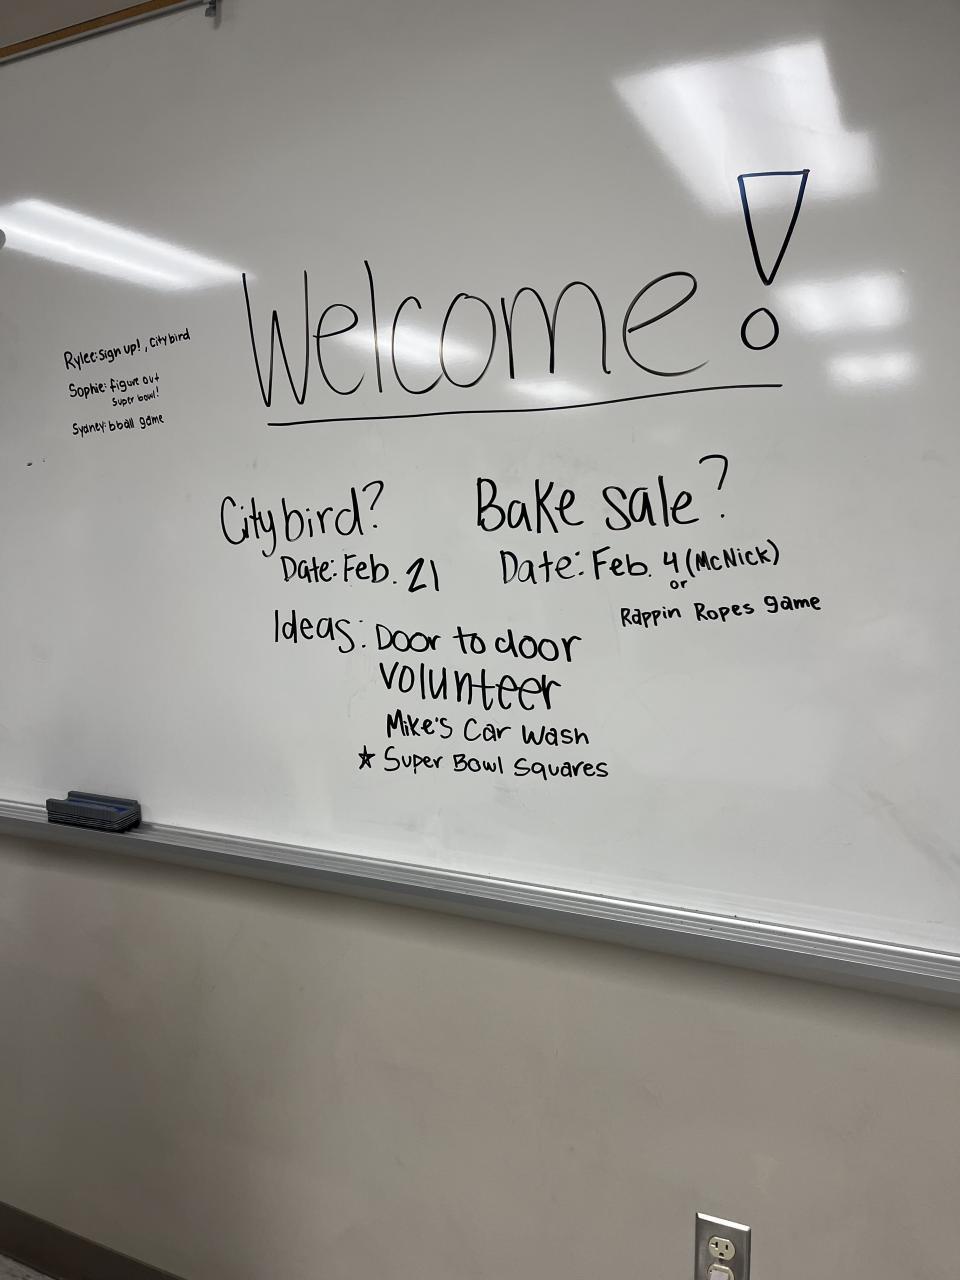 Welcome!
Rylee: sign up!, city bird
Sophie: figure out
super bowl!
Sydney: bball game
City bird?
Date: Feb. 21
Bake sale?
Date: Feb. 4 (McNick)
or
Rappin Ropes game
Ideas: Door to door
volunteer
Mike's Car Wash
★ Super Bowl Squares